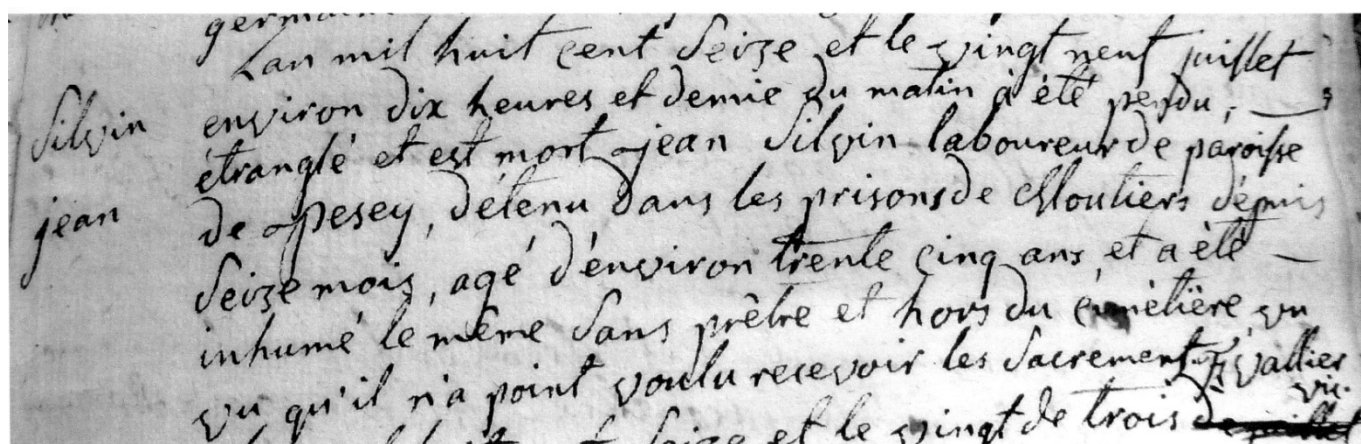 Lan mil huit cent Seize et le vingt neuf juillet
Silvin
environ dix heures et demie du matin à été pendu,
étranglé et est mort jean Silvin laboureur de paroisse
jean
de pesey, détenu dans les prisons de Moutiers dépuis
Seize mois, agé d'environ trente cinq ans, et a été
inhumé le même Sans prêtre et hors du cimetière vu
vu qu'il n'a point voulu recevoir les Sacrement vallier
vic.
Seize et le vingt de trois